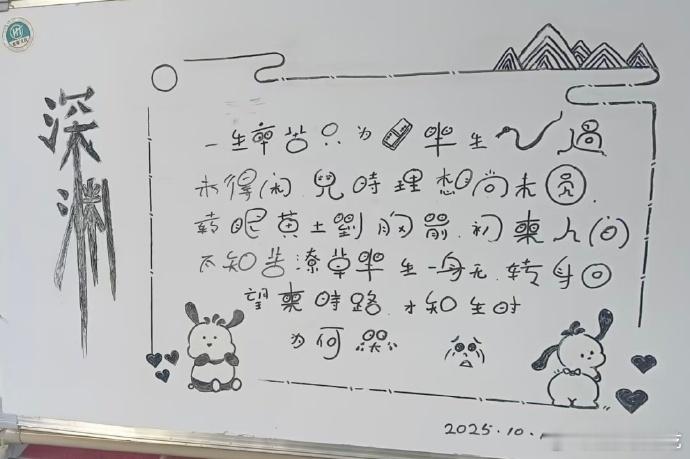 深渊
一生辛苦只为 半生 过
未得闲 儿时理想尚未圆
转眼黄土到胸前 初来人间
不知苦潦草半生一身无 转身回
望来时路 才知生时
为何哭
2025.10.